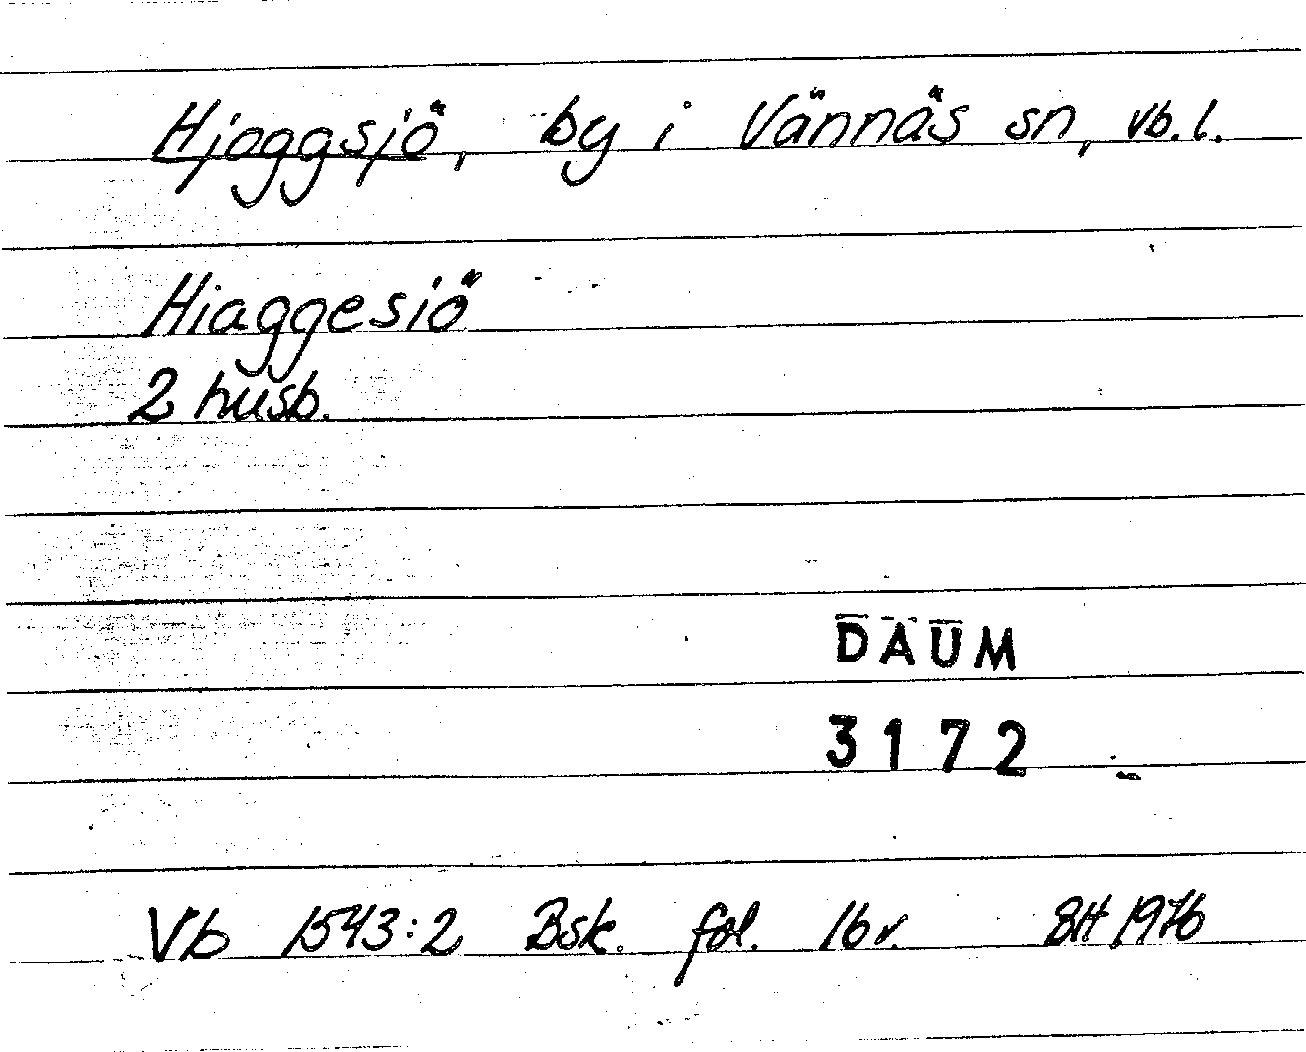 Hjoggsjö, by i Vännäs sn, vb.l.
Hiaggesiö
2 husb.
DAUM
3172
Vb 1543:2 Bsk. fol. 16 v. EH 1976